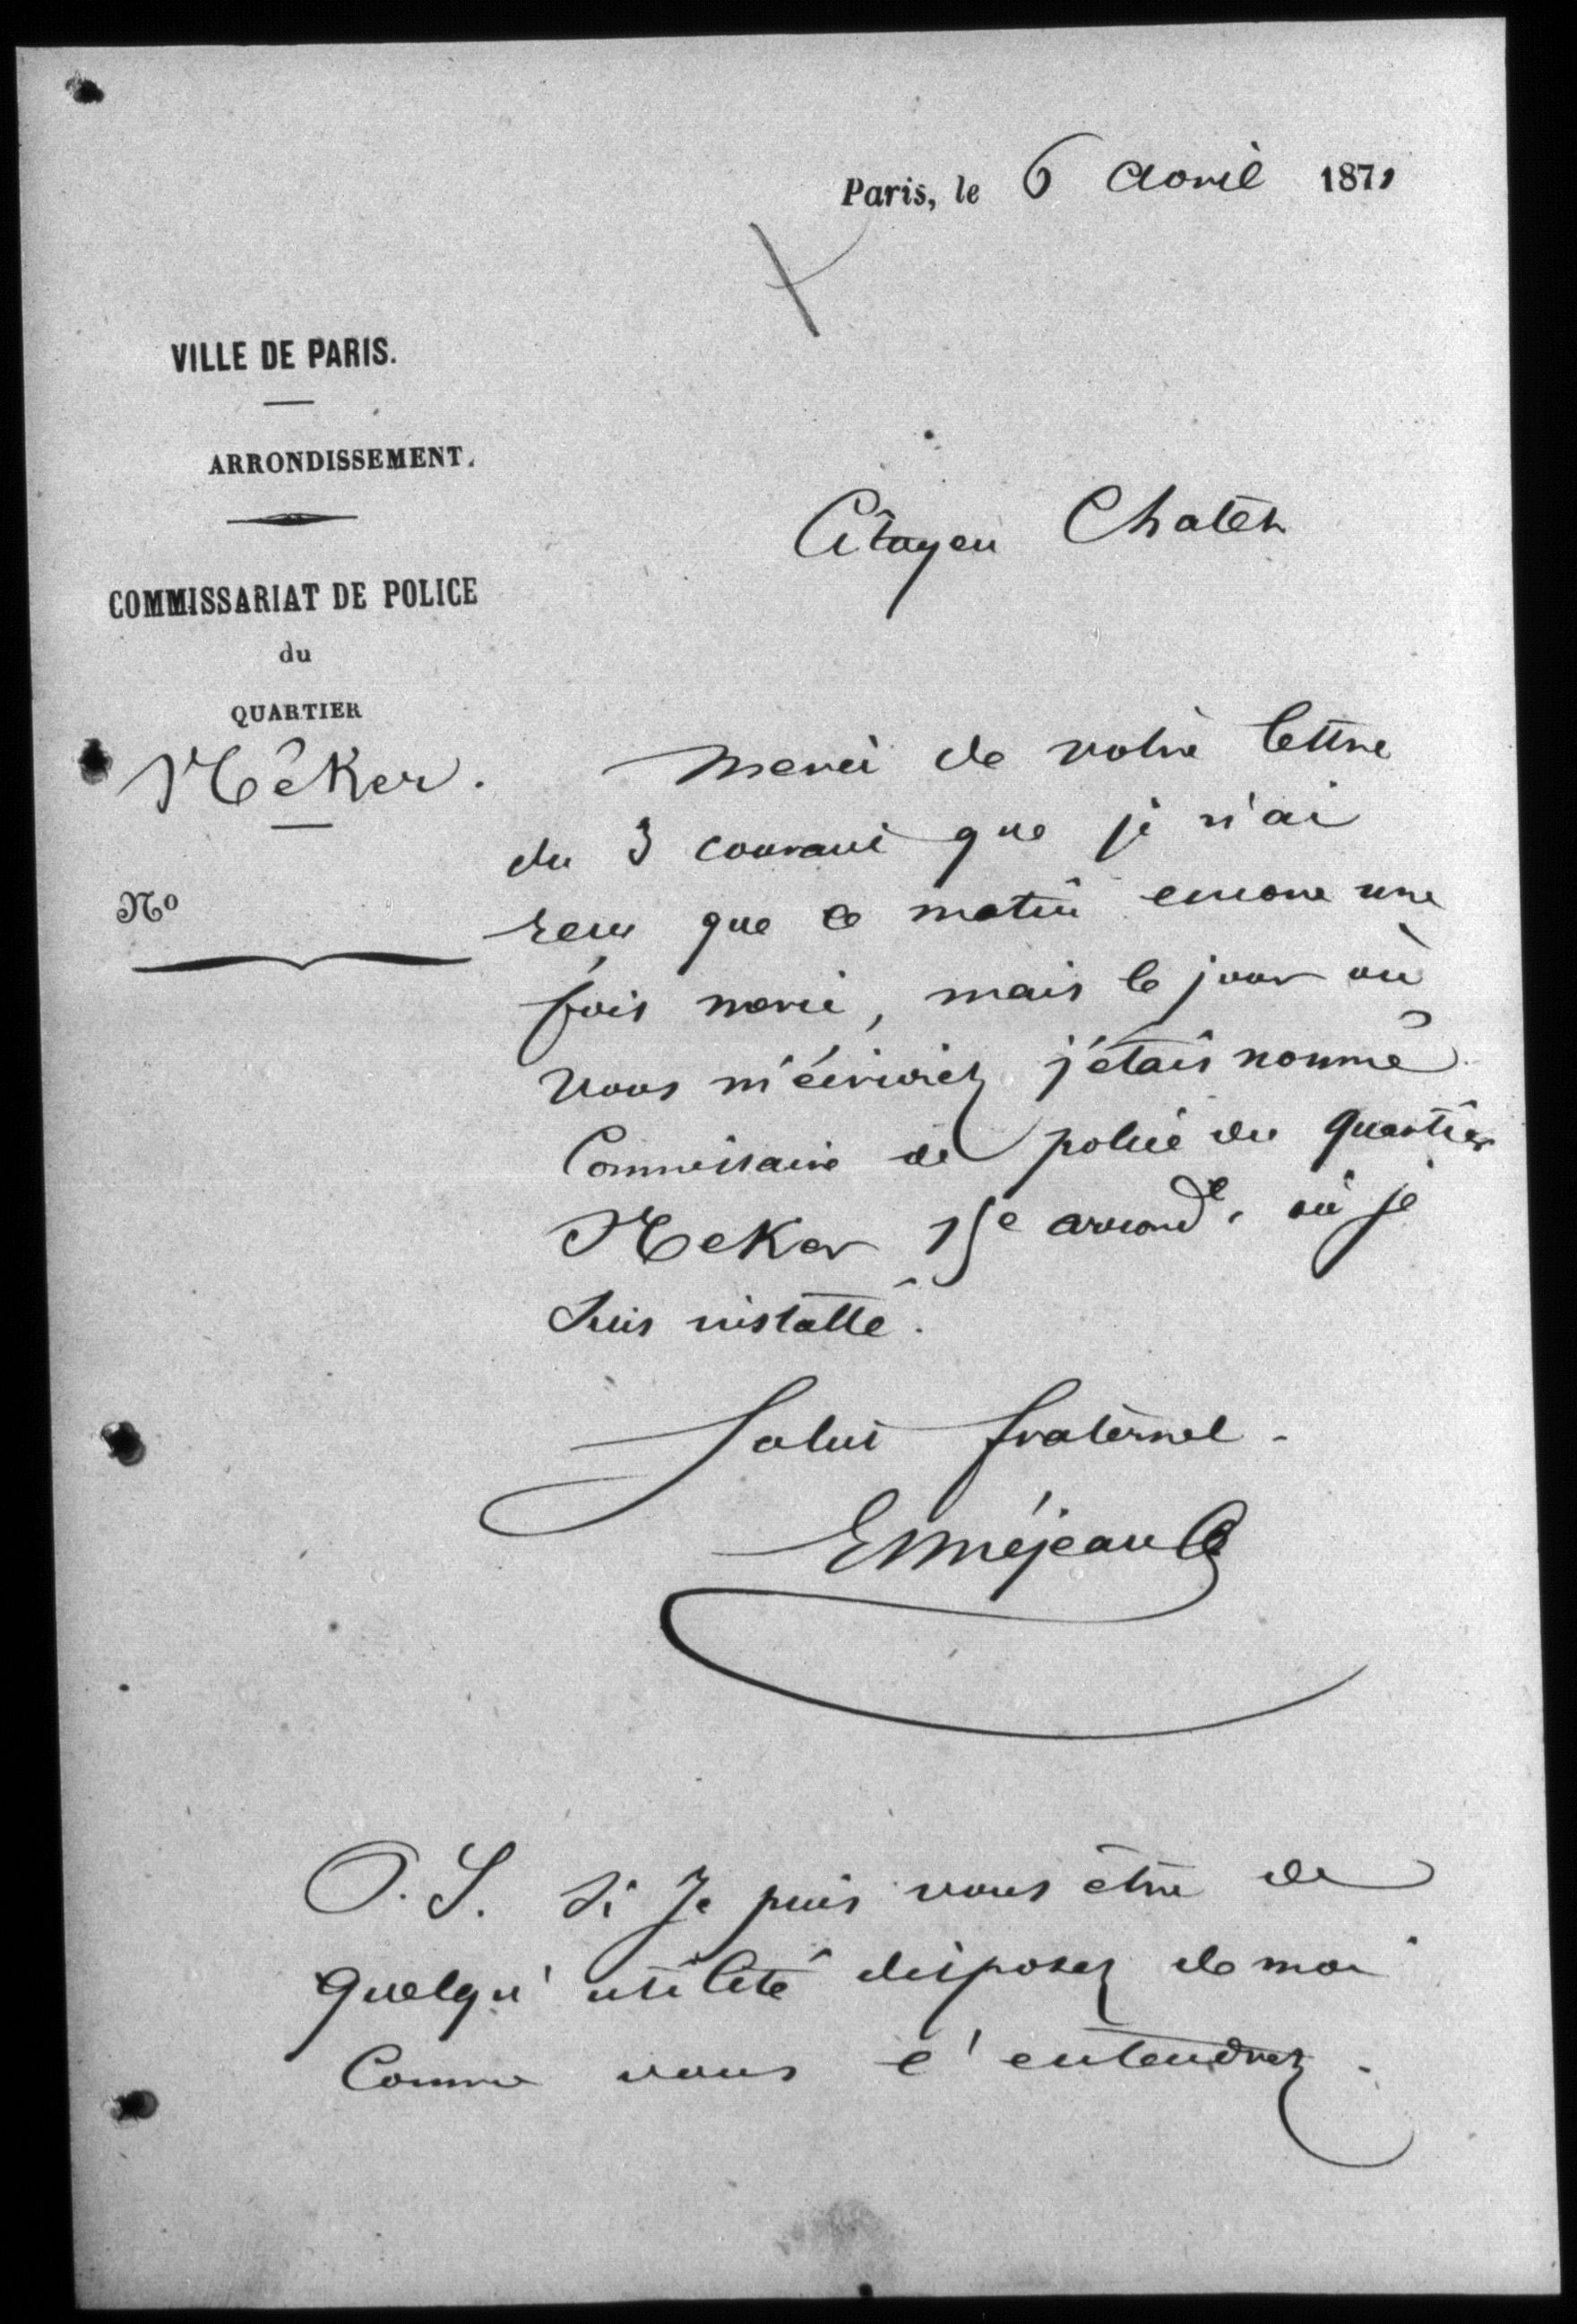 Paris, le 6 avril 1871
VILLE DE PARIS.
ARRONDISSEMENT.
Citoyen Chatel
COMMISSARIAT DE POLICE
du
QUARTIER
Néker.
No
Merci de votre lettre
du 3 courant que je n'ai
reçu que ce matin encore une
fois merci, mais le jour où
vous m'écriviez j'étais nommé
Commissaire de police du quartier
Neker 15e arrondt. où je
suis installé.
Salut fraternel.
E Méjean
P.S. Si Je puis vous être de
quelqu'utilité disposez de moi
Comme vous l'entendrez.